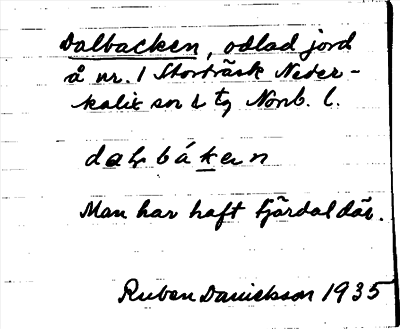 Dalbacken, odlad jord
å nr. 1 Storträsk Neder-
kalix sn & tg Norrb. l.
dalbáken
Man har haft tjärdal där.
Ruben Danielsson 1935